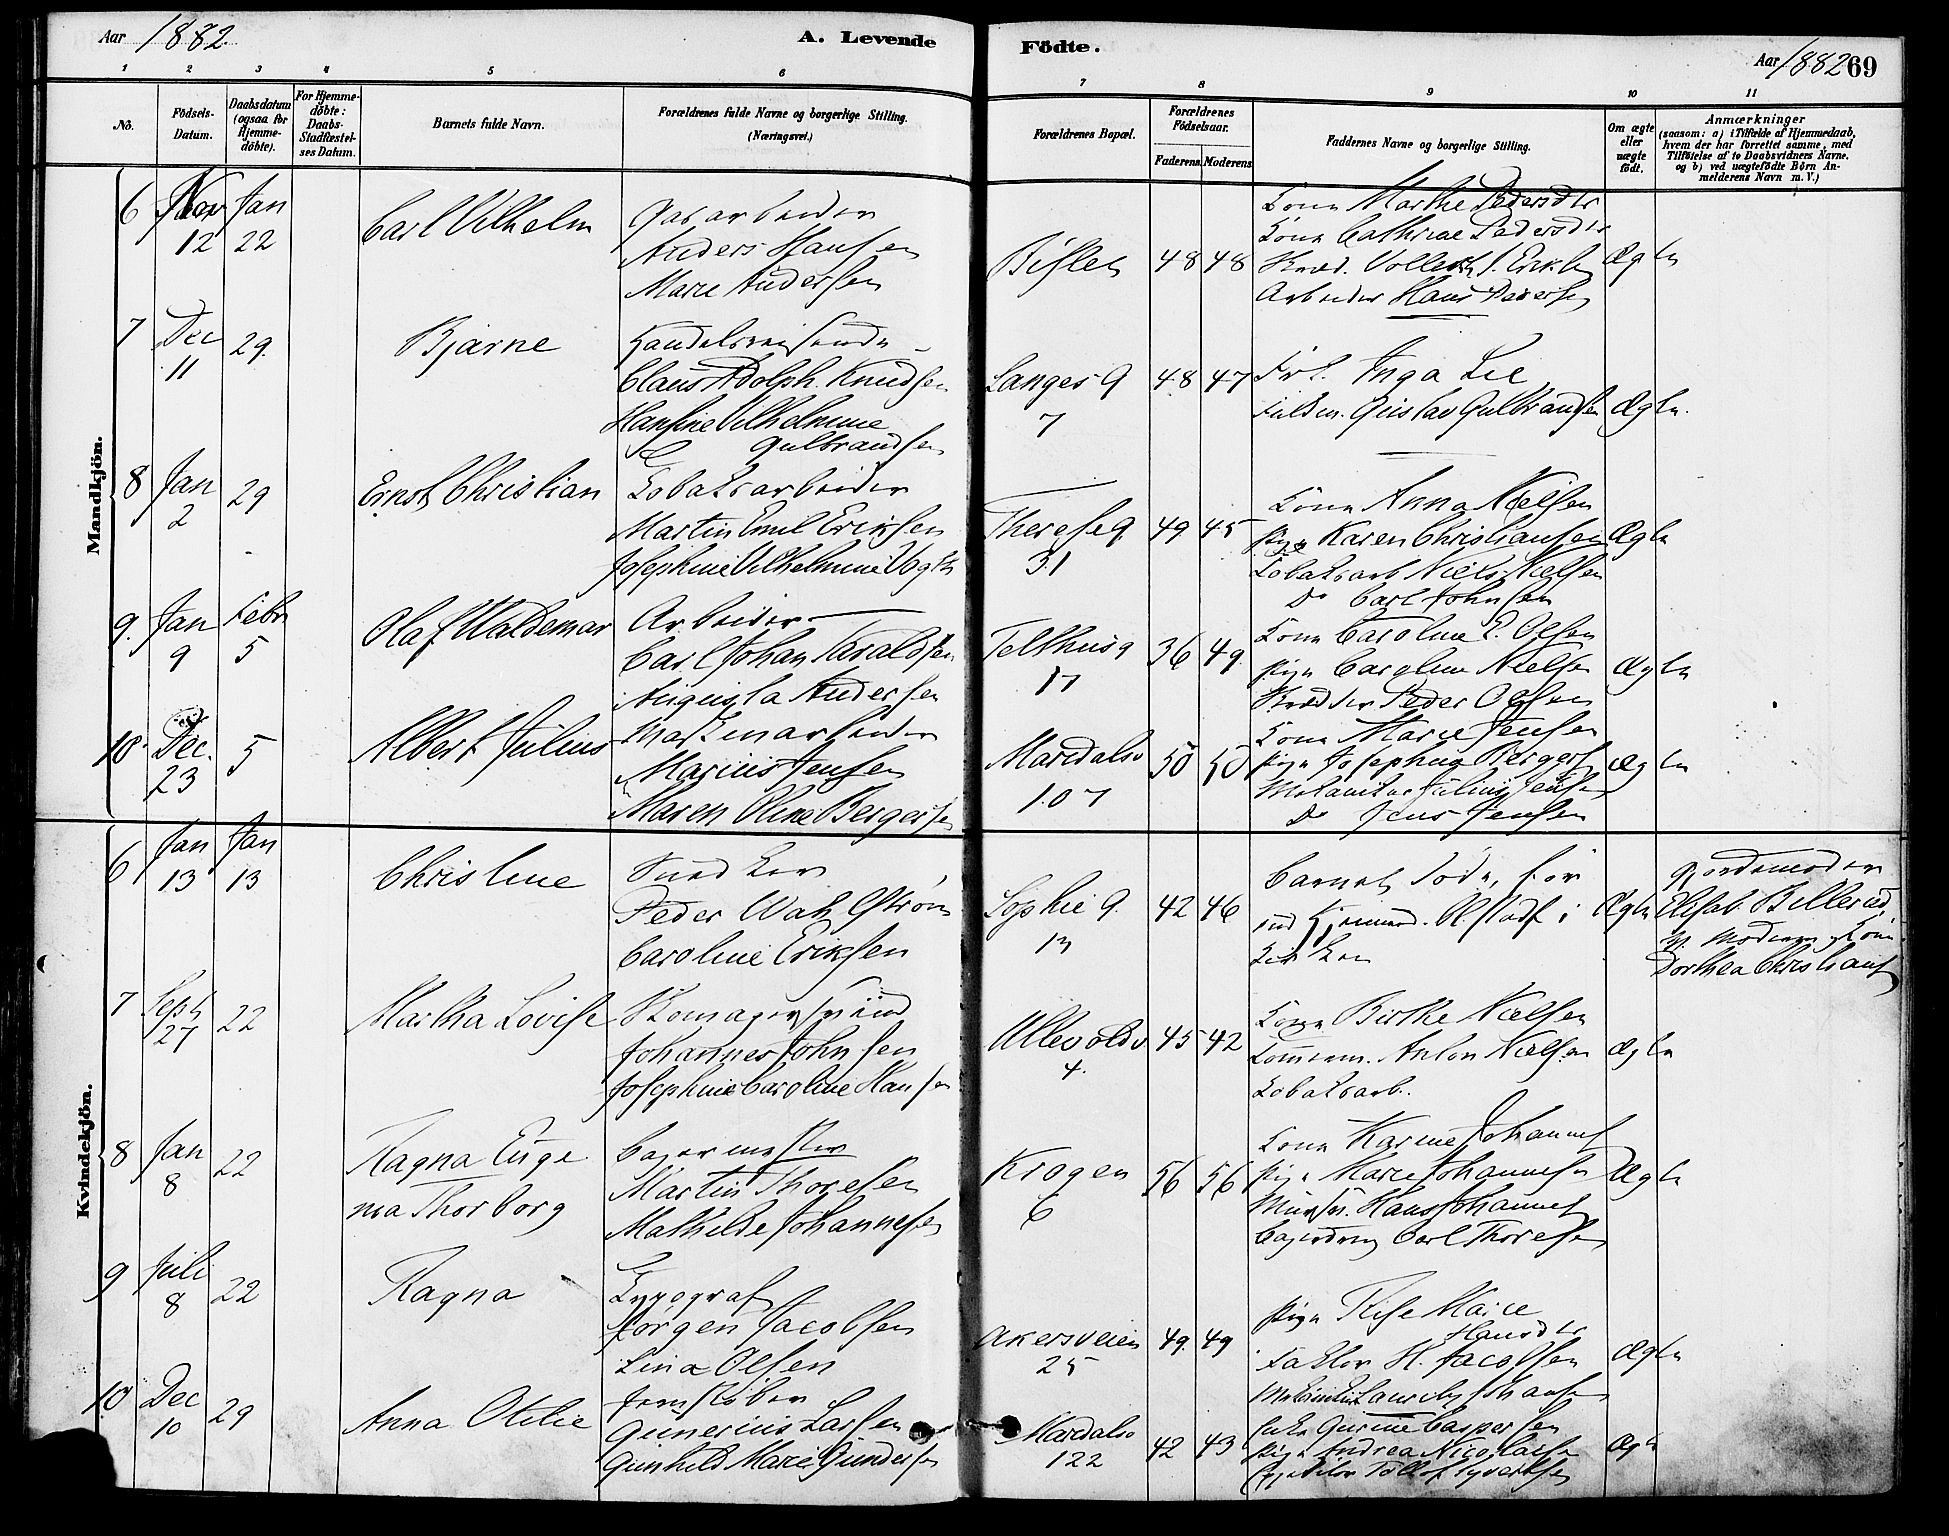 Aar 1882
A. Levende
Födte.
Aar 1882
69
1
2
3
4
5
6
7
8
9
10
11
No.
Födsels-
Datum.
Daabsdatum
(ogsaa for
Hjemme-
döbte).
For Hjemme-
döbte:
Daabs-
Stadfæstel-
ses Datum.
Barnets fulde Navn.
Forældrenes fulde Navne og borgerlige Stilling.
(Næringsvei.)
Forældrenes Bopæl.
Forældrenes
Födselsaar.
Faderens.
Moderens.
Faddernes Navne og borgerlige Stilling.
Om ægte
eller
uægte
födt.
Anmærkninger
(saasom: a) i Tilfælde af Hjemmedaab,
hvem der har forrettet samme, med
Tilföielse af to Daabsvidners Navne.
og b) ved uægtefödte Börn An-
melderens Navn m. V.)
Mandkjön.
6
12
Jan
22
Carl Vilhelm
Gasarbeider
Anders Hansen
Marie Andersen
Bislet
48
48
Kone Marthe Pedersdtr
Kone Cathrine Pedersdtr
Arbeider Hans Pedersen
Ægte
7
Dec
11
29.
Bjarne
Handelsreisende
Claus Adolph Knudsen
Hansine Vilhelmine
Gulbrandsen
Langes G
7
48
47
Frk. Inga Lie
Gustav Gulbrandsen
Ægte.
8
Jan
2
29
Ernst Christian
Tobaksarbeider
Martin Emil Eriksen
Josephine Vilhelmine Vogt
Therese g
31
49
45
Kone Anna Nielsen
Pige Karen Christiansen
Tobaksarb Niels Nielsen
Do Carl Johnsen
Ægte
9.
Jan
9
Febr
5
Olaf Waldemar
Arbeider
Carl Johan Haraldsen
Augusta Andersen
Telthusg
17
36
49
Kone Caroline E. Olsen
Pige Caroline Nielsen
Peder Olsen
Ægte
10
Dec.
23
5
Albert Julius
Maskinarbeider
Marius Jensen
Maren Oline Bergersen
Maridalsv
107
50
50
Kone Marie Jensen
Pige Josephine Bergers
Julius Jensen
Do Jens Jensen
Ægte
Kvindekjön.
6
Jan
13
Jan
13
Christine
Snedker
Peder Wahlstrøm
Caroline Eriksen
Sophie g.
13
42
46
Barnet døde, før
Kirken
Ægte
Gjordemoder
Elisab. Billerud,
Dorthea Christians
7
Sept
27
22
Martha Lovise
Skomagersvend
Johannes Johnsen
Josephine Caroline Hansen
Ullevoldsv
4.
45
42
Kone Birthe Nielsen
Anton Nielsen
Tobaksarb.
Ægte
8
Jan
8
22
Ragna Euge
nia Thorborg
Bagermester
Martin Thoresen
Mathilde Johannesen
Krogen
6
56
56
Kone Karine Johannes
Pige Marie Johannesen
Hans Johannes
Carl Thoresen
Ægte
9
Juli
8
22
Ragna
Typograf
Jörgen Jacobsen
Lina Olsen
Akersveien
25
49.
49
Marie
Hansdtr
Faktor H. Jacobsen
Ægte
10
Dec
10
29
Anna Otilie
Jernstøber
Gunerius Larsen
Gunhild Marie Gundersen
Maridalsv
122
42
43
Gurine Caspersen
Pige Andrea Nicolaisen
Ægte